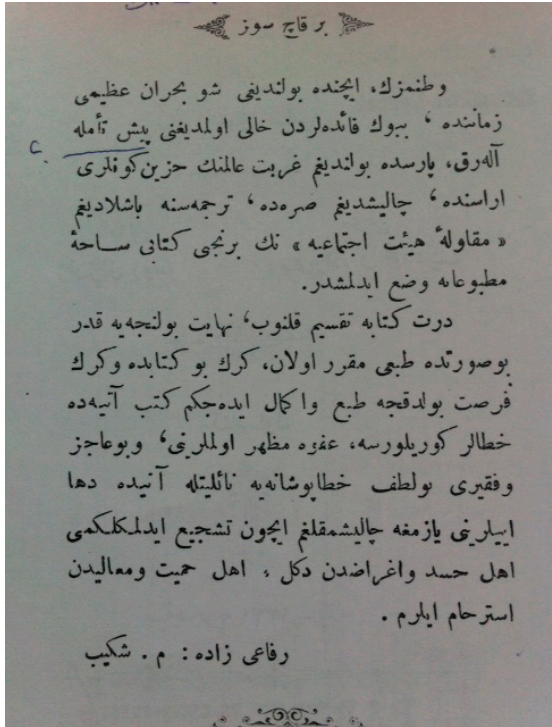 بر قاچ سوز
وطنمزك، ایچنده بولندیغی شو بحران عظیمی
زماننده ، بیوك فائده‌لردن خالی اولمدیغنی پیش تأمله
آله‌رق، پارسده بولندیغم غربت عالمنك حزین كونلری
اراسنده ، چالیشدیغم صره‌ده ، ترجمه‌سنه باشلادیغم
« مقاولهٔ هیئت اجتماعیه » نك برنجی كتابی ساحهٔ
مطبوعاته وضع ایدلمشدر.
درت كتابه تقسیم قلنوب ، نهایت بولنجه‌یه قدر
بوصورتده طبعی مقرر اولان، كرك بو كتابده وكرك
فرصت بولدقجه طبع واكمال ایده‌جكم كتب آتیه‌ده
خطالر كوریلورسه، عفوه مظهر اولملرینی ، وبوعاجز
وفقیری بولطف خطاپوشانه‌یه نائلیتله آتیده دها
اییلرینی یازمغه چالیشمقلغم ایچون تشجیع ایدلمكلكمی
اهل حسد واغراضدن دكل ، اهل حمیت ومعالیدن
استرحام ایلرم .
رفاعی زاده : م . شكیب